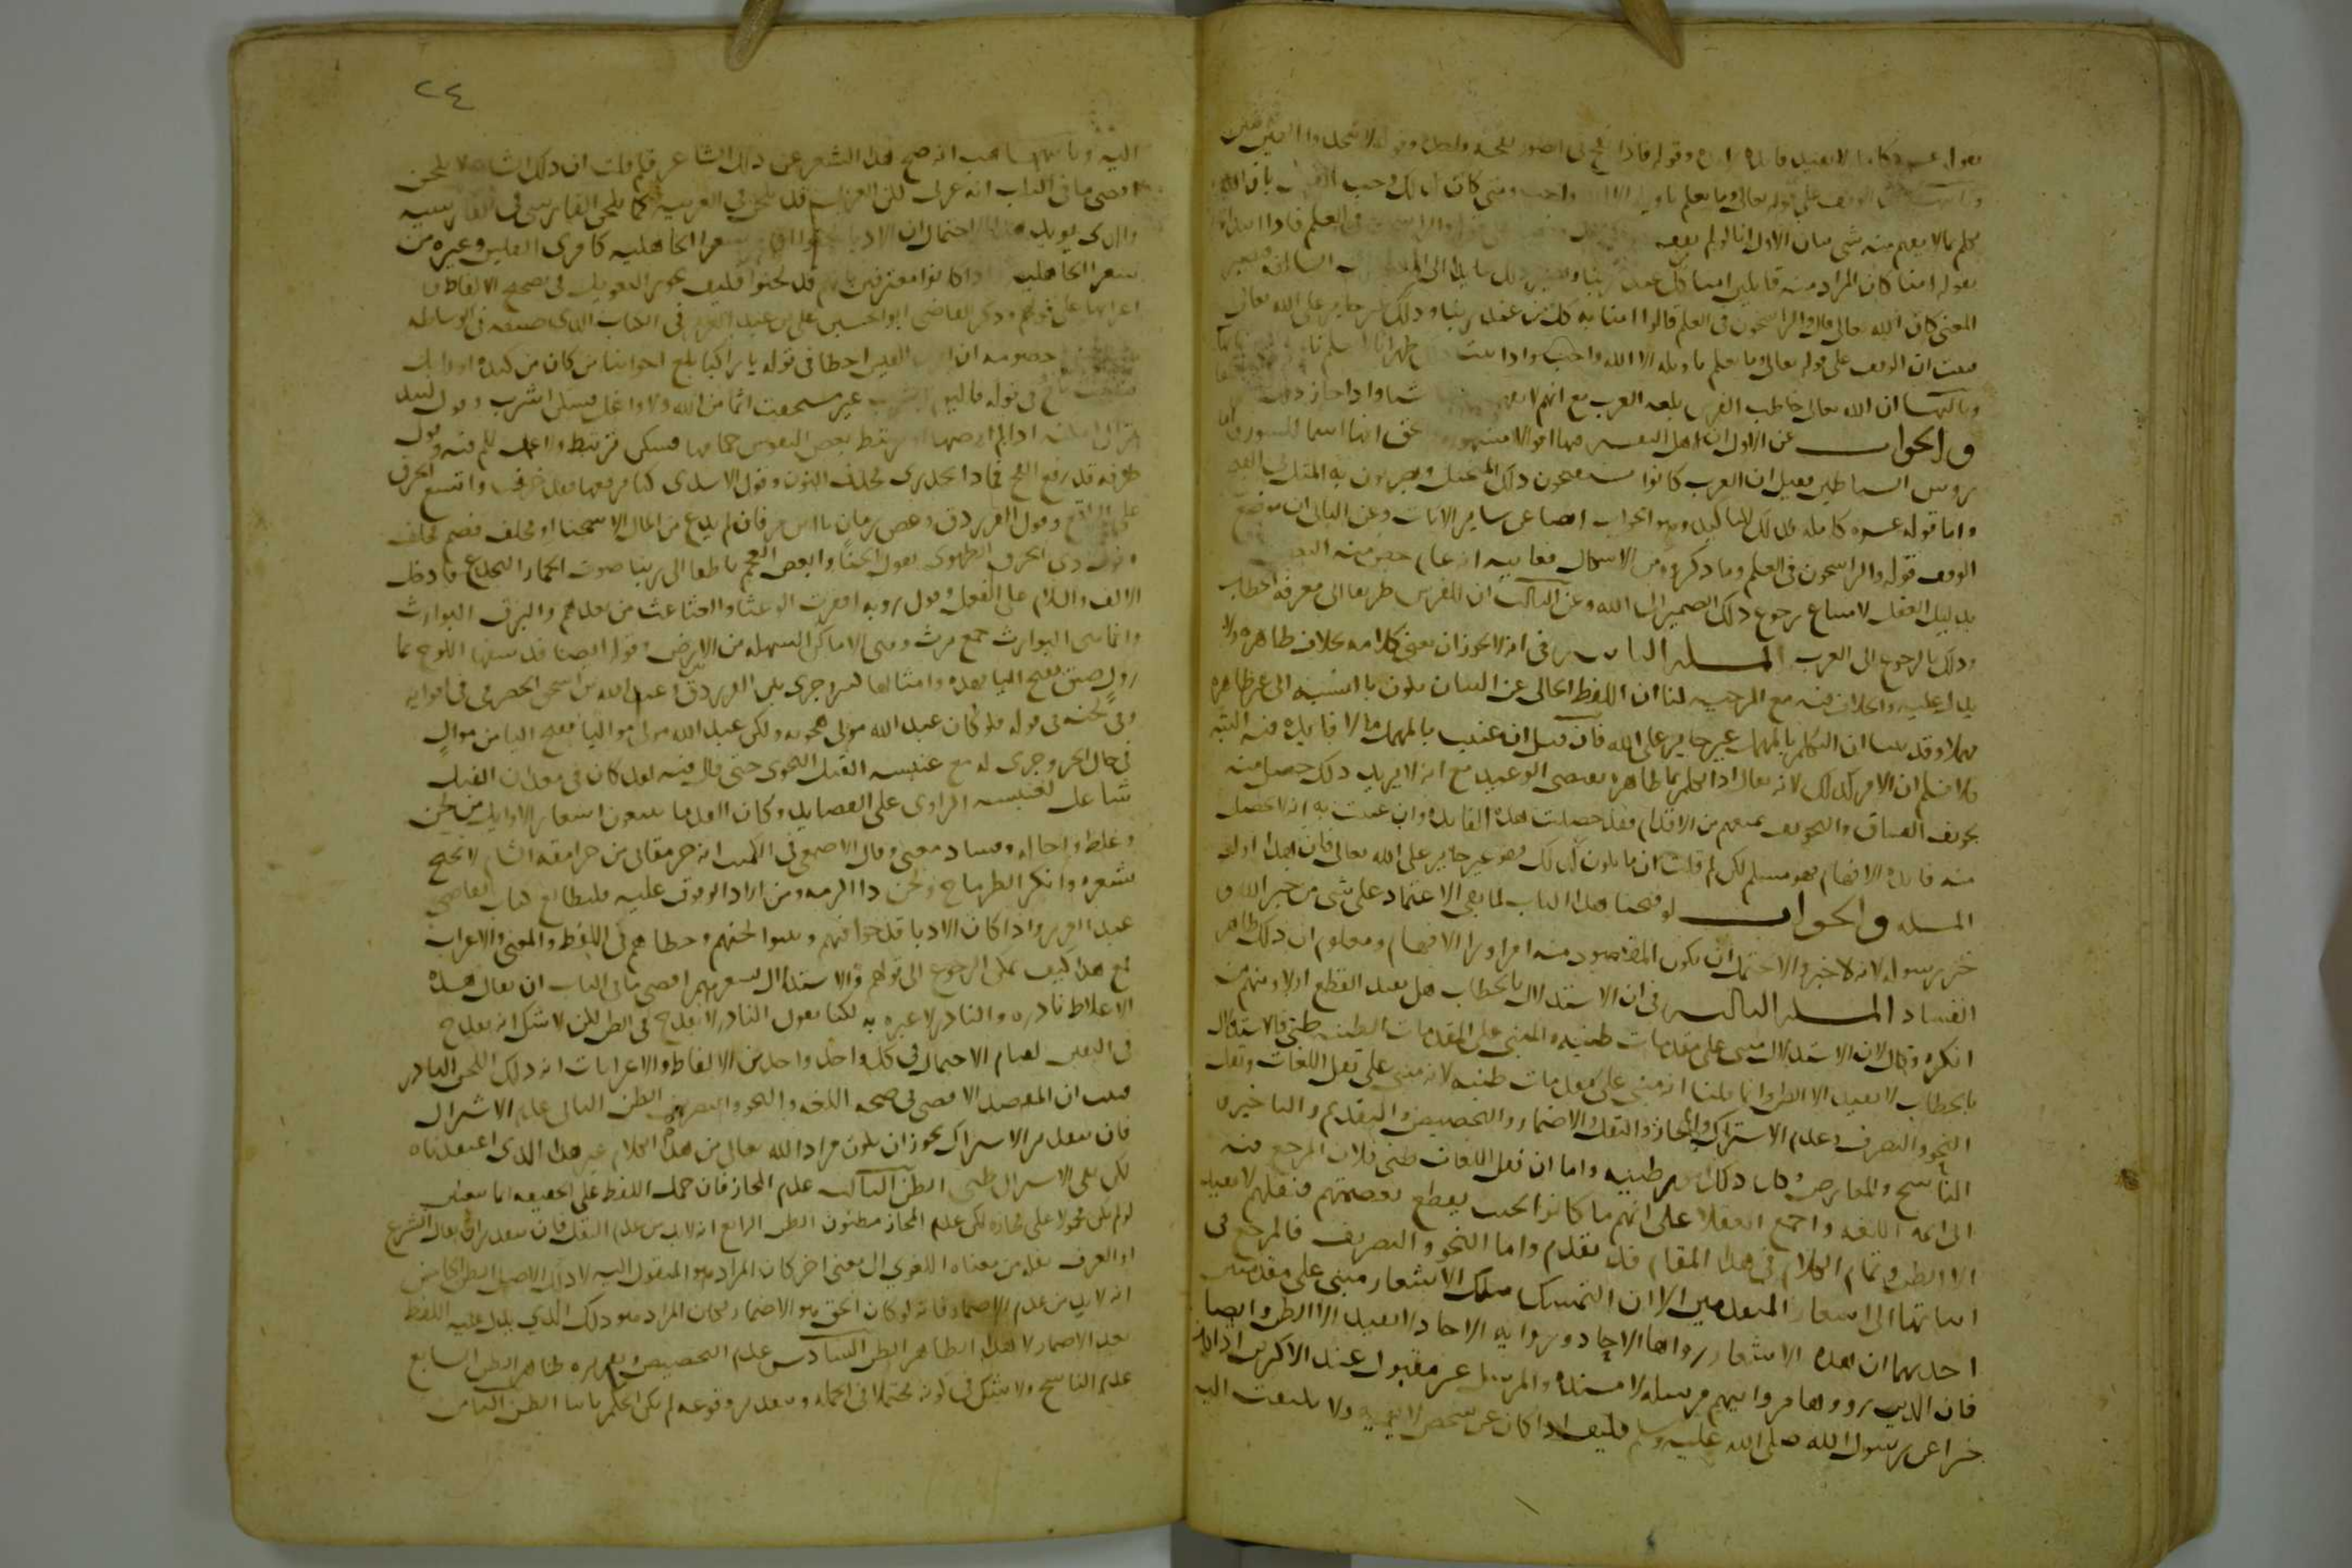 بقوله عشرة كاملة لا يفيد فائدة زائدة وقوله فاذا نفخ في الصور نفخة واحدة وقوله لا تتخذوا الهين اثنين
الوقف على قوله تعالى وما يعلم تاويله الا الله واجب ومتى كان كذلك وجب القول بان الله
تكلم بما لا يفهم منه شي بيان الاول انا لو لم نقف
يقوله امنا كان المراد منه قايلين امنا به كل من عند ربنا
المعنى كان الله تعالى قال والراسخون في العلم قالوا امنا به كل من عند ربنا وذلك غير جايز على الله تعالى
فثبت ان الوقف على قوله تعالى وما يعلم تاويله الا الله واجب واذا ثبت
وثالثها ان الله تعالى خاطب الفرس بلغة العرب مع انهم لا يفهمون شيا واذا جاز ذلك
والجواب عن الاول ان لاهل التفسير فيها اقوالا مشهورة والحق انها اسما للسور واما
رووس الشياطين فقيل ان العرب كانوا يستقبحون ذلك المتخيل ويضربون به المثل في القبح
واما قوله عشرة كاملة فذلك للتاكيد وهو الجواب ايضا عن ساير الايات وعن الثاني ان موضع
الوقف قوله والراسخون في العلم وما ذكروه من الاشكال فغايته انه عام خص منه البعض
بدليل العقل لامتناع رجوع ذلك الضمير الى الله وعن الثالث ان للفرس طريقا الى معرفة الخطاب
وذلك بالرجوع الى العرب المسلة الثانية في انه لا يجوز ان يعني بكلامه خلاف ظاهره ولا
يدل عليه والخلاف فيه مع المرجية لنا ان اللفظ الخالي عن البيان يكون بالنسبة الى غير ظاهره
مهملا وقد بينا ان التكلم بالمهمل غير جايز على الله فان قيل ان عنيت بالمهمل ما لا فايدة فيه البتة
فلا نسلم ان الامر كذلك لانه تعالى اذا تكلم بما ظاهره يقتضي الوعيد مع انه لا يريد ذلك حصل منه
تخويف الفساق والتخويف يمنعهم من الاقدام فقد حصلت هذه الفايدة وان عنيت به انه لا يحصل
منه فايدة الافهام فهو مسلم لكن لم قلت ان ما يكون كذلك فهو غير جايز على الله تعالى فان هذا اول
المسلة والجواب لو فتحنا هذا الباب لما بقي الاعتماد على شي من خبر الله و
خبر رسوله لانه لا خبر والا يحتمل ان يكون المقصود منه امرا ورا الافهام ومعلوم ان ذلك ظاهر
الفساد المسلة الثالثة في ان الاستدلال بالخطاب هل يفيد القطع ام لا ومنهم من
انكره وقال لان الاستدلال مبني على مقدمات ظنية والمبني على المقدمات الظنية ظني فالاستدلال
بالخطاب لا يفيد الا الظن وانما قلنا انه مبني على مقدمات ظنية لانه مبني على نقل اللغات ونقل
النحو والتصريف وعدم الاشتراك والمجاز والنقل والاضمار والتخصيص والتقديم والتاخير و
الناسخ والمعارض وكل ذلك امور ظنية واما ان نقل اللغات ظني فلان المرجع فيه
الى ايمة اللغة واجمع العقلا على انهم ما كانوا بحيث يقطع بعصمتهم فنقلهم لا يفيد
الا الظن وتمام الكلام في هذا المقام قد تقدم واما النحو والتصريف فالمرجع في
اثباتهما الى اشعار المتقدمين الا ان التمسك بتلك الاشعار مبني على مقدمتين
احديهما ان هذه الاشعار رواها الاحاد ورواية الاحاد لا تفيد الا الظن وايضا
فان الذين رووها مرواتهم مرسلة لا مسندة والمرسل غير مقبول عند الاكثرين اذا كان
خبرا عن رسول الله صلى الله عليه وسلم فكيف اذا كان عن شخص لا يوبه ولا يلتفت اليه
٢٤
اليه وثانيهما هب انه صح هذا الشعر عن ذلك الشاعر فلم قلت ان ذلك الشاعر لا يلحن
اقصى ما في الباب انه عربي لكن العربي قد يلحن في العربية كما يلحن الفارسي في الفارسية
والذي يويد هذا الاحتمال ان الادبا شعرا الجاهلية كامري القيس وغيره من
شعرا الجاهلية واذا كانوا معترفين بانهم قد لحنوا فكيف يجوز التعويل في تصحيح الالفاظ و
اعرابها على قولهم وذكر القاضي ابو الحسين علي بن عبد العزيز في الكتاب الذي صنفه في الوساطة
خصومه ان امرا القيس اخطا في قوله يا راكبا بلغ اخواننا من كان من كندة او وايل
في قوله فاليوم اشرب غير مستحقب اثما من الله ولا واغل فسكن اشرب وقول لبيد
تراك امكنة اذا لم ارضها او يرتبط بعض النفوس حمامها فسكن يرتبط ولا عمل للم فيه وقول
طرفة قد رفع الفخ فماذا تحذري فحذف النون وقول الاسدي كنا نرقعها فقد مزقت واتسع الخرق
على الراقع وقول الفرزدق وعض زمان يا ابن مروان لم يدع من المال الا مسحتا او مجلف فضم مجلف
وقول ذي الخرق الطهوي يقول الخنا وابغض العجم ناطقا الى ربنا صوت الحمار اليجدع فادخل
الالف واللام على الفعل وقول روبة اقفرت الوعثا والعثاعث من بعدهم والبرق البوارث
وانما هي البرارث جمع برث وهي الاماكن السهلة من الارض وقوله ايضا
بفتح اليا هذه وامثالها كثير وجرى بين الفرزدق وعبد الله بن اسحق الحضرمي في اقوايه
وفي لحنه في قوله فلو كان عبد الله مولى هجوته ولكن عبد الله مولى مواليا بفتح اليا من موال
في حال الجر وجرى له مع عنبسة الفيل النحوي حتى قال فيه لقد كان في معدان الفيل
شاغل لعنبسة الراوي على القصايد وكان القدما يتبعون اشعار الاوايل من لحن
وغلط واحالة وفساد معنى وقال الاصمعي في الكميت انه جرمقاني من جرامقة الشام لا يحتج
بشعره وانكر الطرماح ولحن ذا الرمة ومن اراد الوقوف عليه فليطالع كتاب القاضي
عبد العزيز واذا كان الادبا قد حوا فيهم وبينوا لحنهم وخطاهم في اللفظ والمعنى والاعراب
مع هذا كيف يمكن الرجوع الى قولهم والاستدلال بشعرهم اقصى ما في الباب ان يقال هذه
الاغلاط نادرة والنادر لا عبرة به لكنا نقول النادر لا يقدح في الظن لكن لا شك انه يقدح
في اليقين لقيام الاحتمال في كل واحد واحد من الالفاظ والاعرابات انه ذلك اللحن النادر
فثبت ان المقصد الاقصى في صحة اللغة والنحو والتصريف الظن الثاني عدم الاشتراك
فان بتقدير الاشتراك يجوز ان يكون مراد الله تعالى من هذا الكلام غير هذا الذي اعتقدناه
لكن نفي الاشتراك ظني الظن الثالث عدم المجاز فان حمل اللفظ على الحقيقة انما يتعين
لو لم يكن محمولا على مجازه لكن عدم المجاز مظنون الظن الرابع انه لا بد من عدم النقل فان بتقدير ان يقال الشرع
او العرف نقله من معناه اللغوي الى معنى اخر كان المراد هو المنقول اليه لا ذلك الاصل الظن الخامس
انه لا بد من عدم الاضمار فانه لو كان الحق هو الاضمار لكان المراد هو ذلك الذي يدل عليه اللفظ
بعد الاضمار لا هذا الظاهر الظن السادس عدم التخصيص وتقريره ظاهر الظن السابع
عدم الناسخ ولا شك في كونه محتملا في الجملة وبتقدير وقوعه لم يكن الحكم ثابتا الظن الثامن